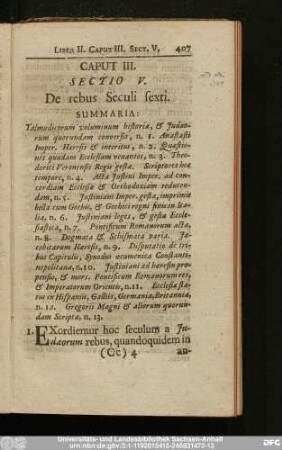 LIBER II. CAPUT III. SECT. V. 407
CAPUT III.
SECTIO V.
De rebus Seculi sexti.
SUMMARIA:
Talmudicorum voluminum historia, & Judæo-
rum quorundam conversio, n. 1. Anastasii
Imper. Hæresis & interitus, n. 2. Quæstio-
nes quædam Ecclesiam venantes, n. 3. Theo-
derici Veronensis Regis gesta. Scriptores hoc
tempore, n. 4. Acta Justini Imper. ad con-
cordiam Ecclesiæ & Orthodoxiam reducen-
dam, n. 5. Justiniani Imper. gesta, imprimis
bella cum Gothis, & Gothici regni finis in Ita-
lia, n. 6. Justiniani leges, & gesta Eccle-
siastica, n. 7. Pontificum Romanorum acta,
n. 8. Dogmata & Schismata varia. Ja-
cobitarum Hæresis, n. 9. Disputatio de tri-
bus Capitulis, Synodus œcumenica Constanti-
nopolitana, n. 10. Justiniani ad hæresin pro-
pensio, & mors. Pontificum Romanorum res,
& Imperatorum Orientis, n. 11. Ecclesiæ sta-
tus in Hispaniis, Galliis, Germania, Britannia,
n. 12. Gregorii Magni & aliorum quorun-
dam Scripta, n. 13.
1. EXordiemur hoc seculum a Ju-
dæorum rebus, quandoquidem in
(Cc) 4 au-
Universitäts- und Landesbibliothek Sachsen-Anhalt
urn:nbn:de:gbv:3:1-1192015415-246831473-13
DFG